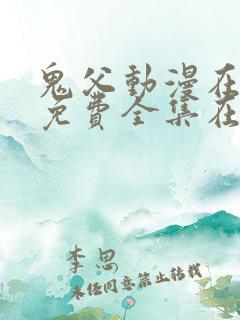 鬼父動漫在
免費全集在
李思
未经同意禁止转载